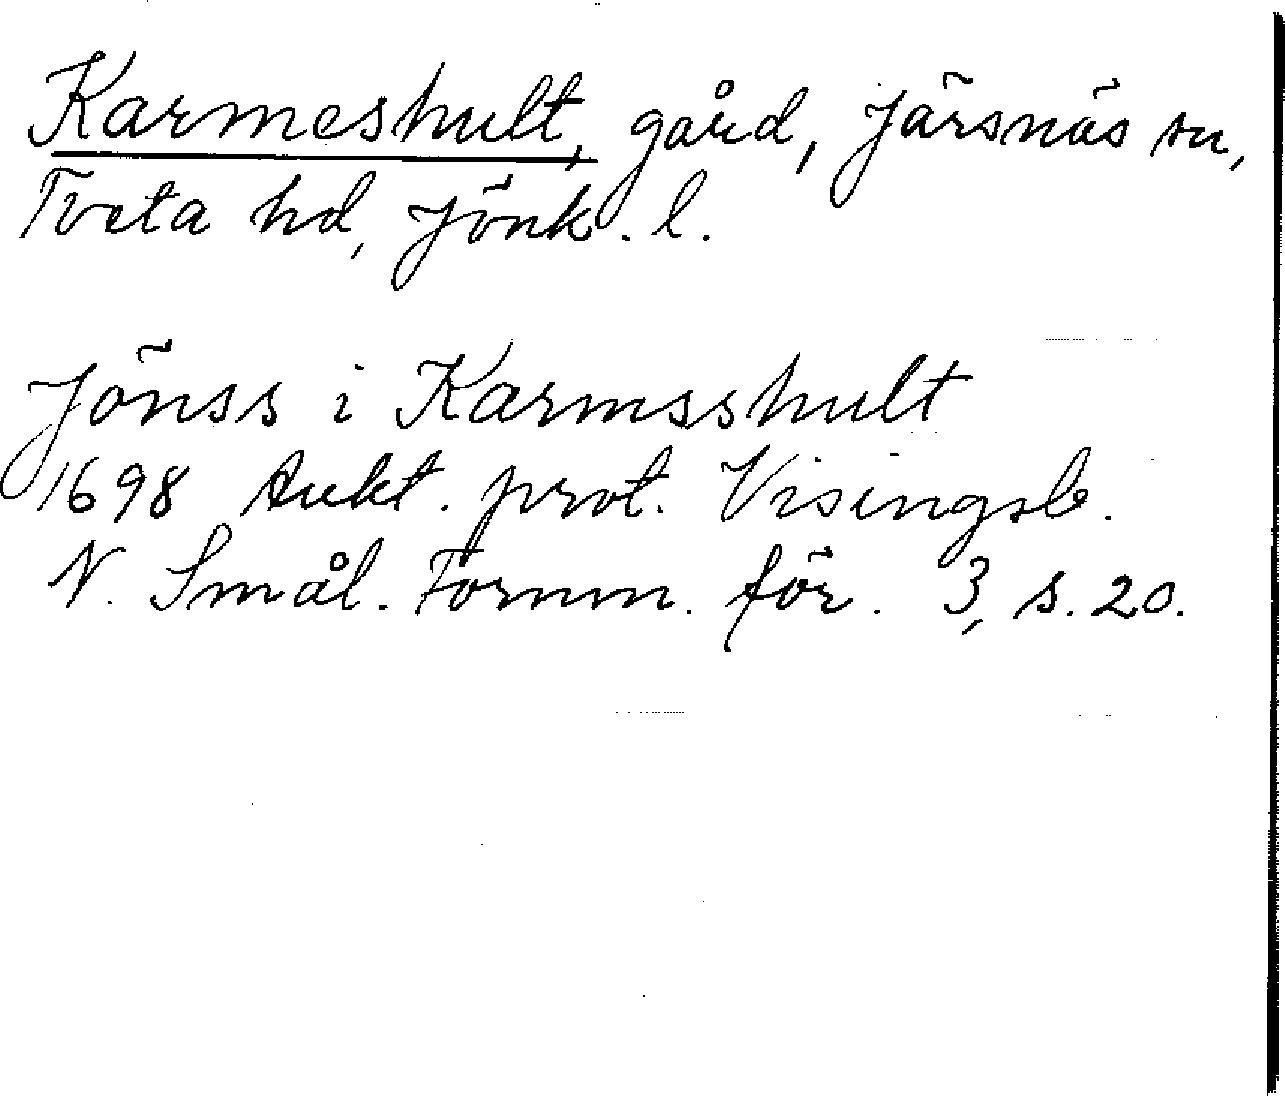 Karmeshult, gård, Järsnäs sn,
Tveta hd, Jönk. l.
Jönss i Karmsshult
1698 Aukt. prot. Visingsb.
N. Smål. Fornm. för. 3, s. 20.